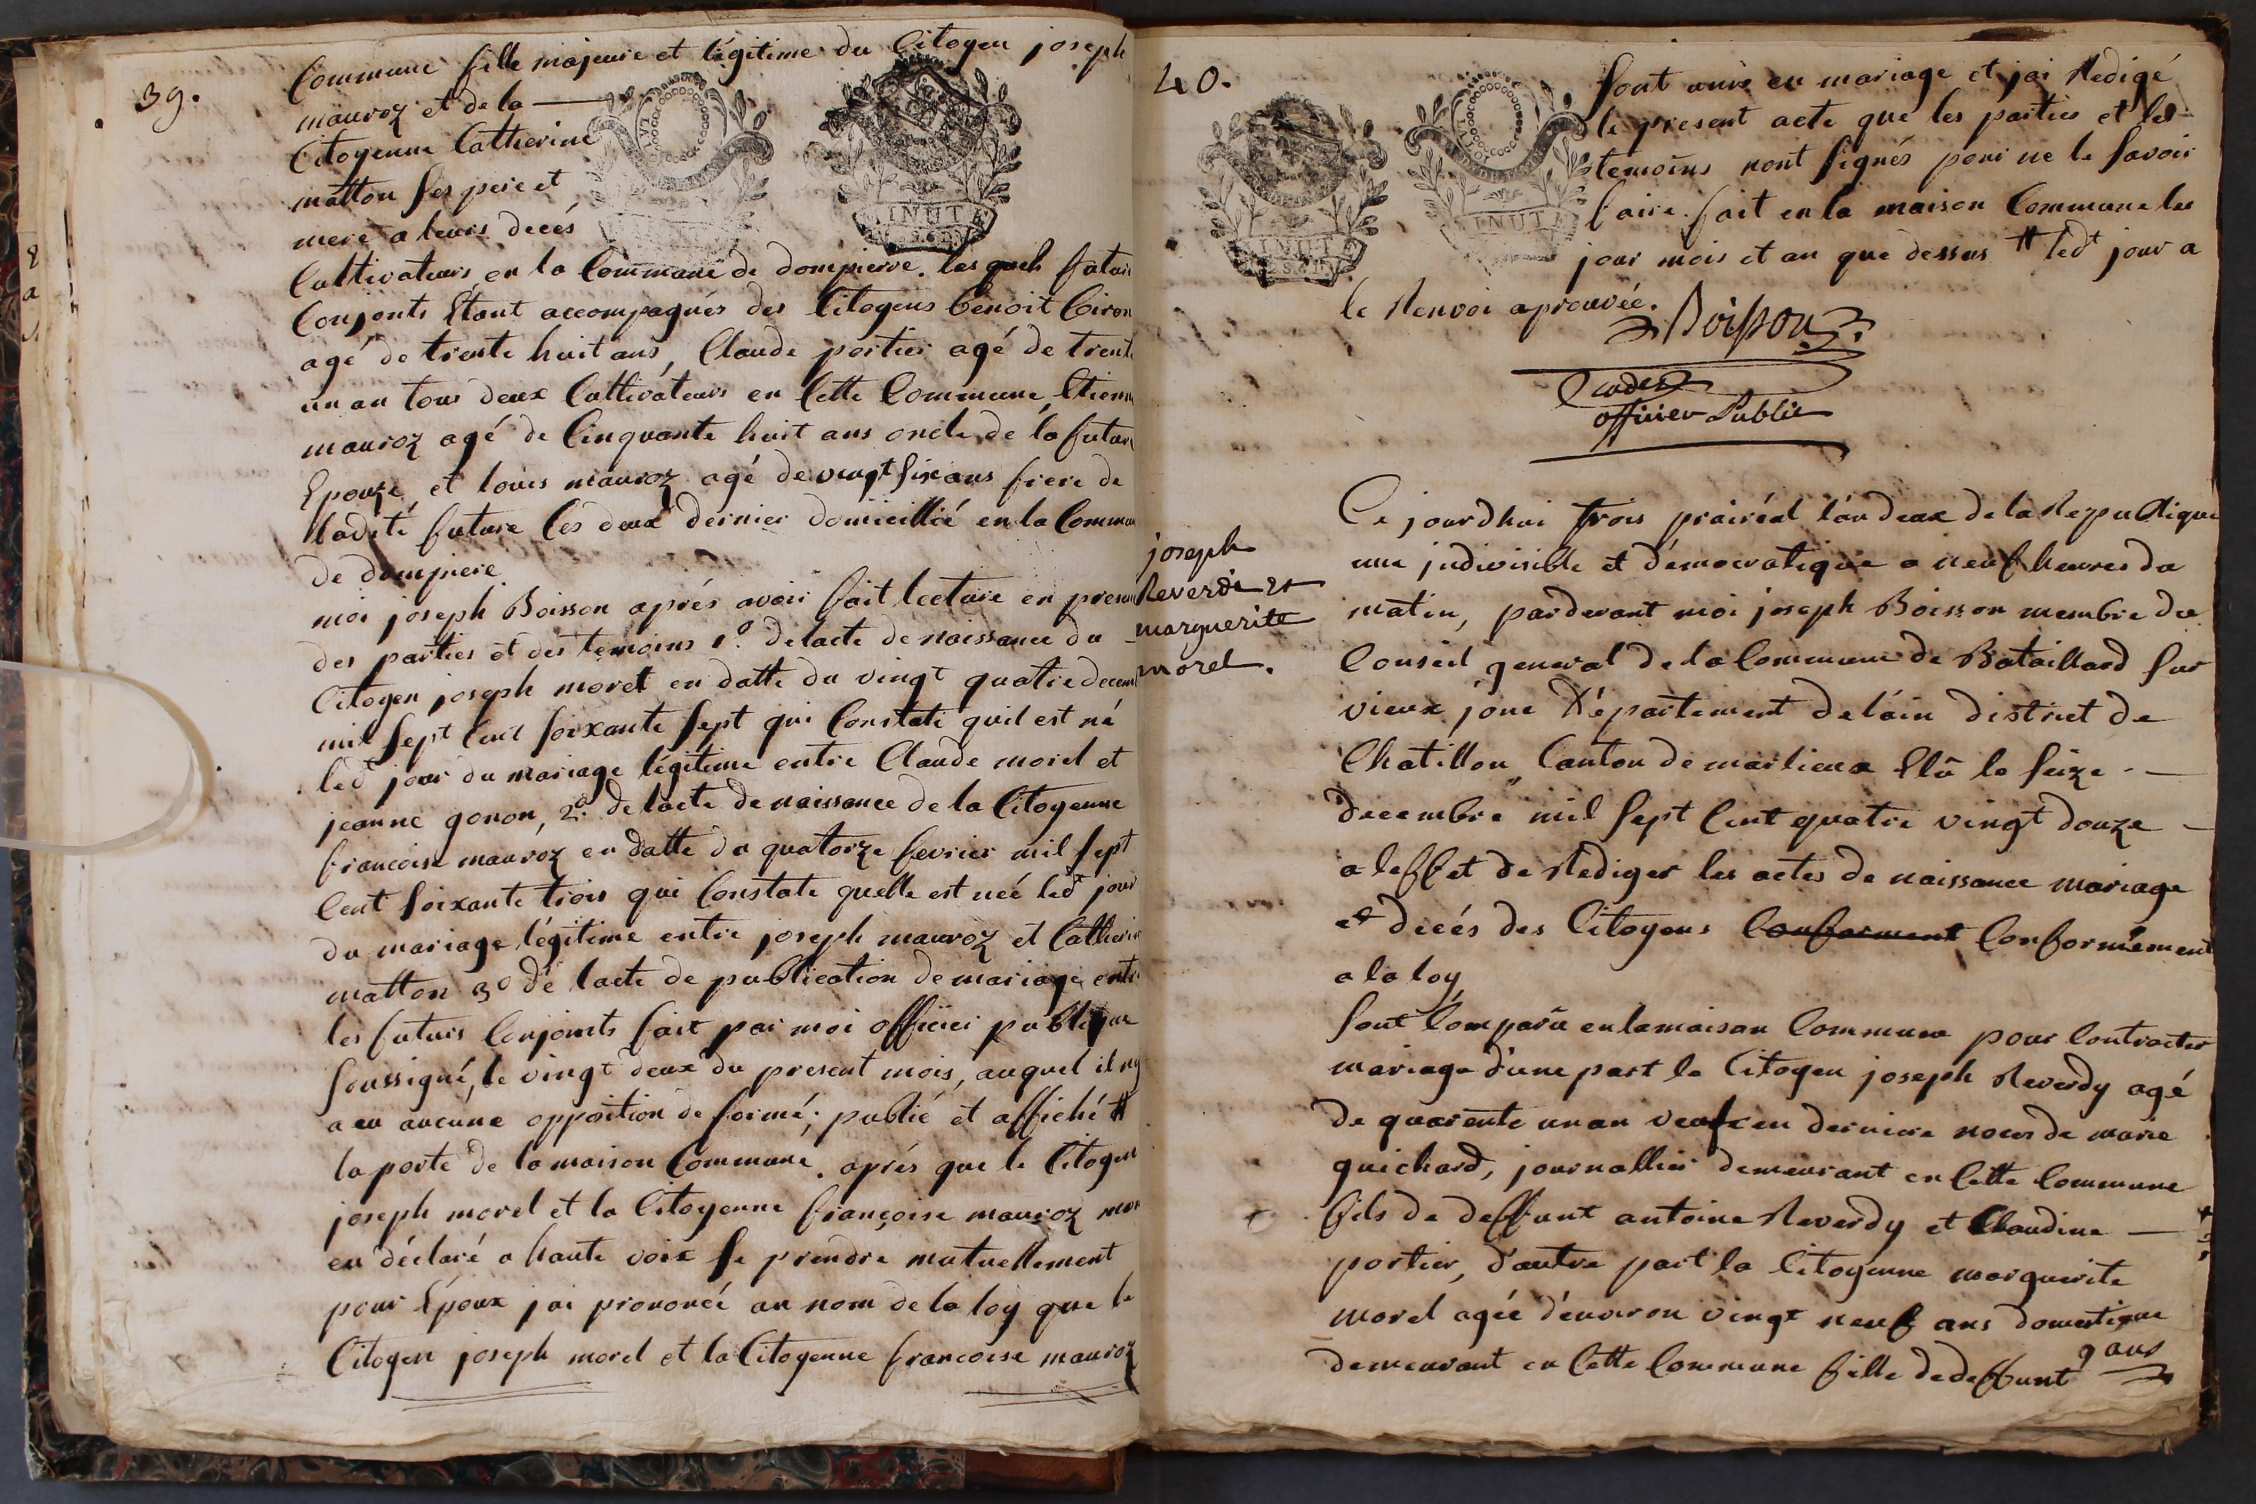 39.
Commune fille majeure et légitime du Citoyen joseph
mauroz et de la
Citoyenne Catherine
matton ses pere et
mere a leurs decés
Cultivateurs en la Commune de dompierre. les quels futurs
Conjonts Etant accompagnés des Citoyens benoit Ciron
agé de trente huit ans, Claude portier agé de trente
un an tous deux Cultivateurs en Cette Commune, Etienne
mauroz agé de Cinquante huit ans oncle de la future
Epouze, et louis mauroz agé de vingt six ans frere de
ladite future Ces deux dernier domicillié en la Commune
de dompiere
moi joseph Boisson aprés avoir fait lecture en presence
des parties et des temoins 1º. de lacte de naissance du
Citoyen joseph morel en datte du vingt quatre decembre
mil sept Cent soixante sept qui Constate quil est né
ledt jour du mariage légitime entre Claude morel et
jeanne gonon, 2º. de lacte de naissance de la Citoyenne
francoise mauroz en datte du quatorze fevrier mil sept
Cent soixante trois qui Constate quelle est neé ledt jour
du mariage légitime entre joseph mauroz et Catherine
matton 3º de lacte de publication de mariage entre
les futurs Conjoints fait par moi officier publique
soussigné, le vingt deux du present mois, auquel il ny
a eu aucune opposition de formé; publié et affiché #
la porte de la maison Commune. aprés que le Citoyen
joseph morel et la Citoyenne françoise mauroz mon
en déclaré a haute voix se prendre mutuellement
pour Epoux jai prononcé au nom de la loy que le
Citoyen joseph morel et la Citoyenne francoise mauroz
MINUTE
40.
sont unis en mariage et jai Redigé
le present acte que les parties et les
temoins nont signés pour ne le savoir
faire. fait en la maison Commune les
jour mois et an que dessus # ledt jour a
le Renvoi aprouvée.
MINUTE
Boisson
officier Public
joseph
Reverdi et
marguerite
morel.
Ce jourdhui trois prairéal l'an deux de la Republique
une indivisible et démocratique a neuf heures du
matin, pardevant moi joseph Boisson membre du
Conseil general de la Commune de Bataillard sur
vieux jonc Département de láin district de
Chatillon, Canton de marlieux Elû le seize
decembre mil sept Cent quatre vingt douze
a leffet de Rediger les actes de naissance mariage
et decés des Citoyens Conforment Conformement
a la loy
sont Comparü en la maison Commune pour Contracter
mariage d'une part le Citoyen joseph Reverdy agé
de quarente un an veuf en derniere noces de marie
guichard, journallier demeurant en Cette Commune
fils de deffunt antoine Reverdy et Claudine
portier, d'autre part la Citoyenne marguerite
morel agée d'environ vingt neuf ans domestique
demeurant en Cette Commune fille de deffunt